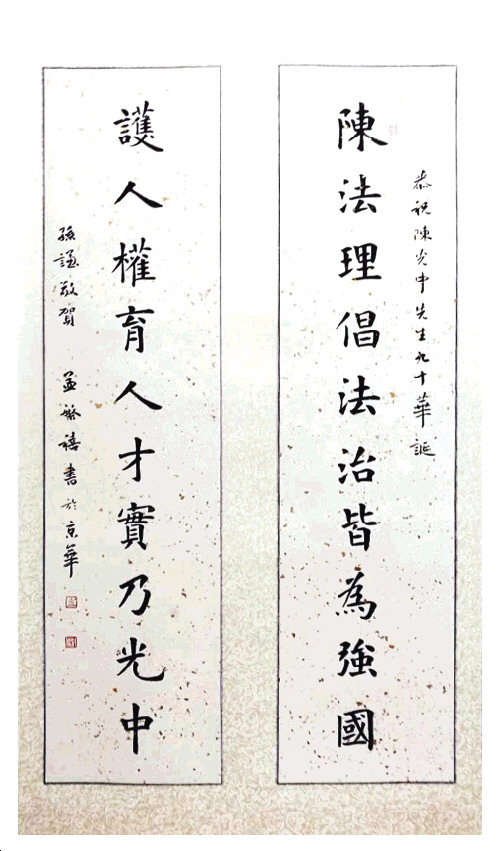 恭祝陳光中先生九十華誕
陳法理倡法治皆為強國
護人權育人才實乃光中
孫謙敬賀 孟繁禧書於京華